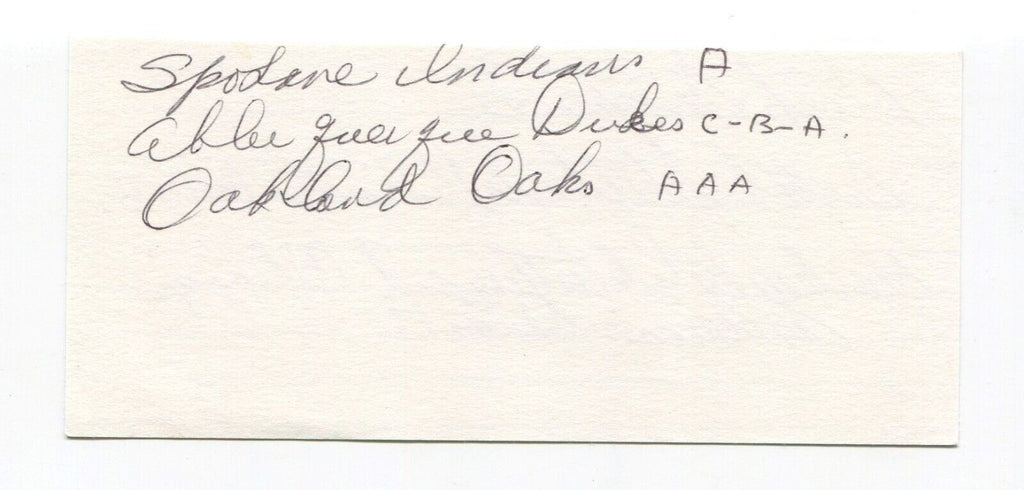 Spokane Indians A
Albuerquerque Dukes C-B-A.
Oakland Oaks AAA